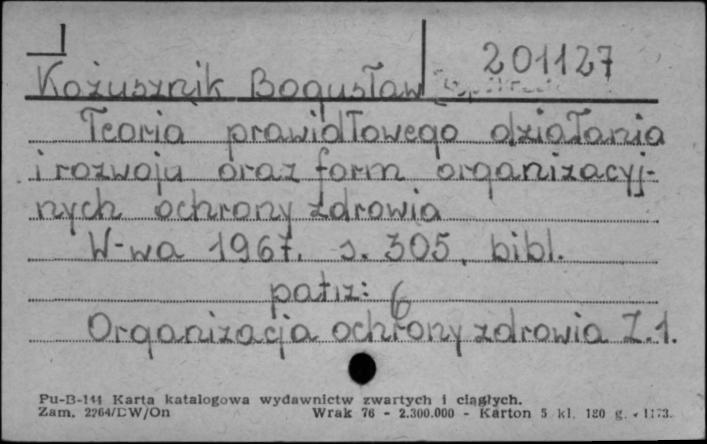 201127
Kożusznik Bogusław
Teoria prawidłowego działania
i rozwoju oraz form organizacyj-
nych ochrony zdrowia
W-wa 1967. s. 305, bibl.
patrz: 6
Organizacja ochrony zdrowia Z.1.
Pu-B-144 Karta katalogowa wydawnictw zwartych i ciągłych.
Zam. 2264/DW/On Wrak 76 - 2.300.000 - Karton 5 kl. 180 g. - 1173.